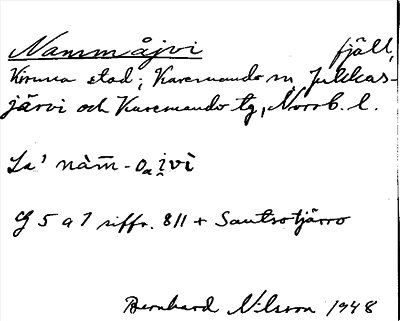 Nammåjvi fjäll,
Kiruna stad; Karesuando m Jukkas-
järvi och Karesuando tg, Norrb. l.
La' nàm̄-oₐi̯vì
G 5 a 7 siffr. 811 + Sautsotjårro
Bernhard Nilsson 1948